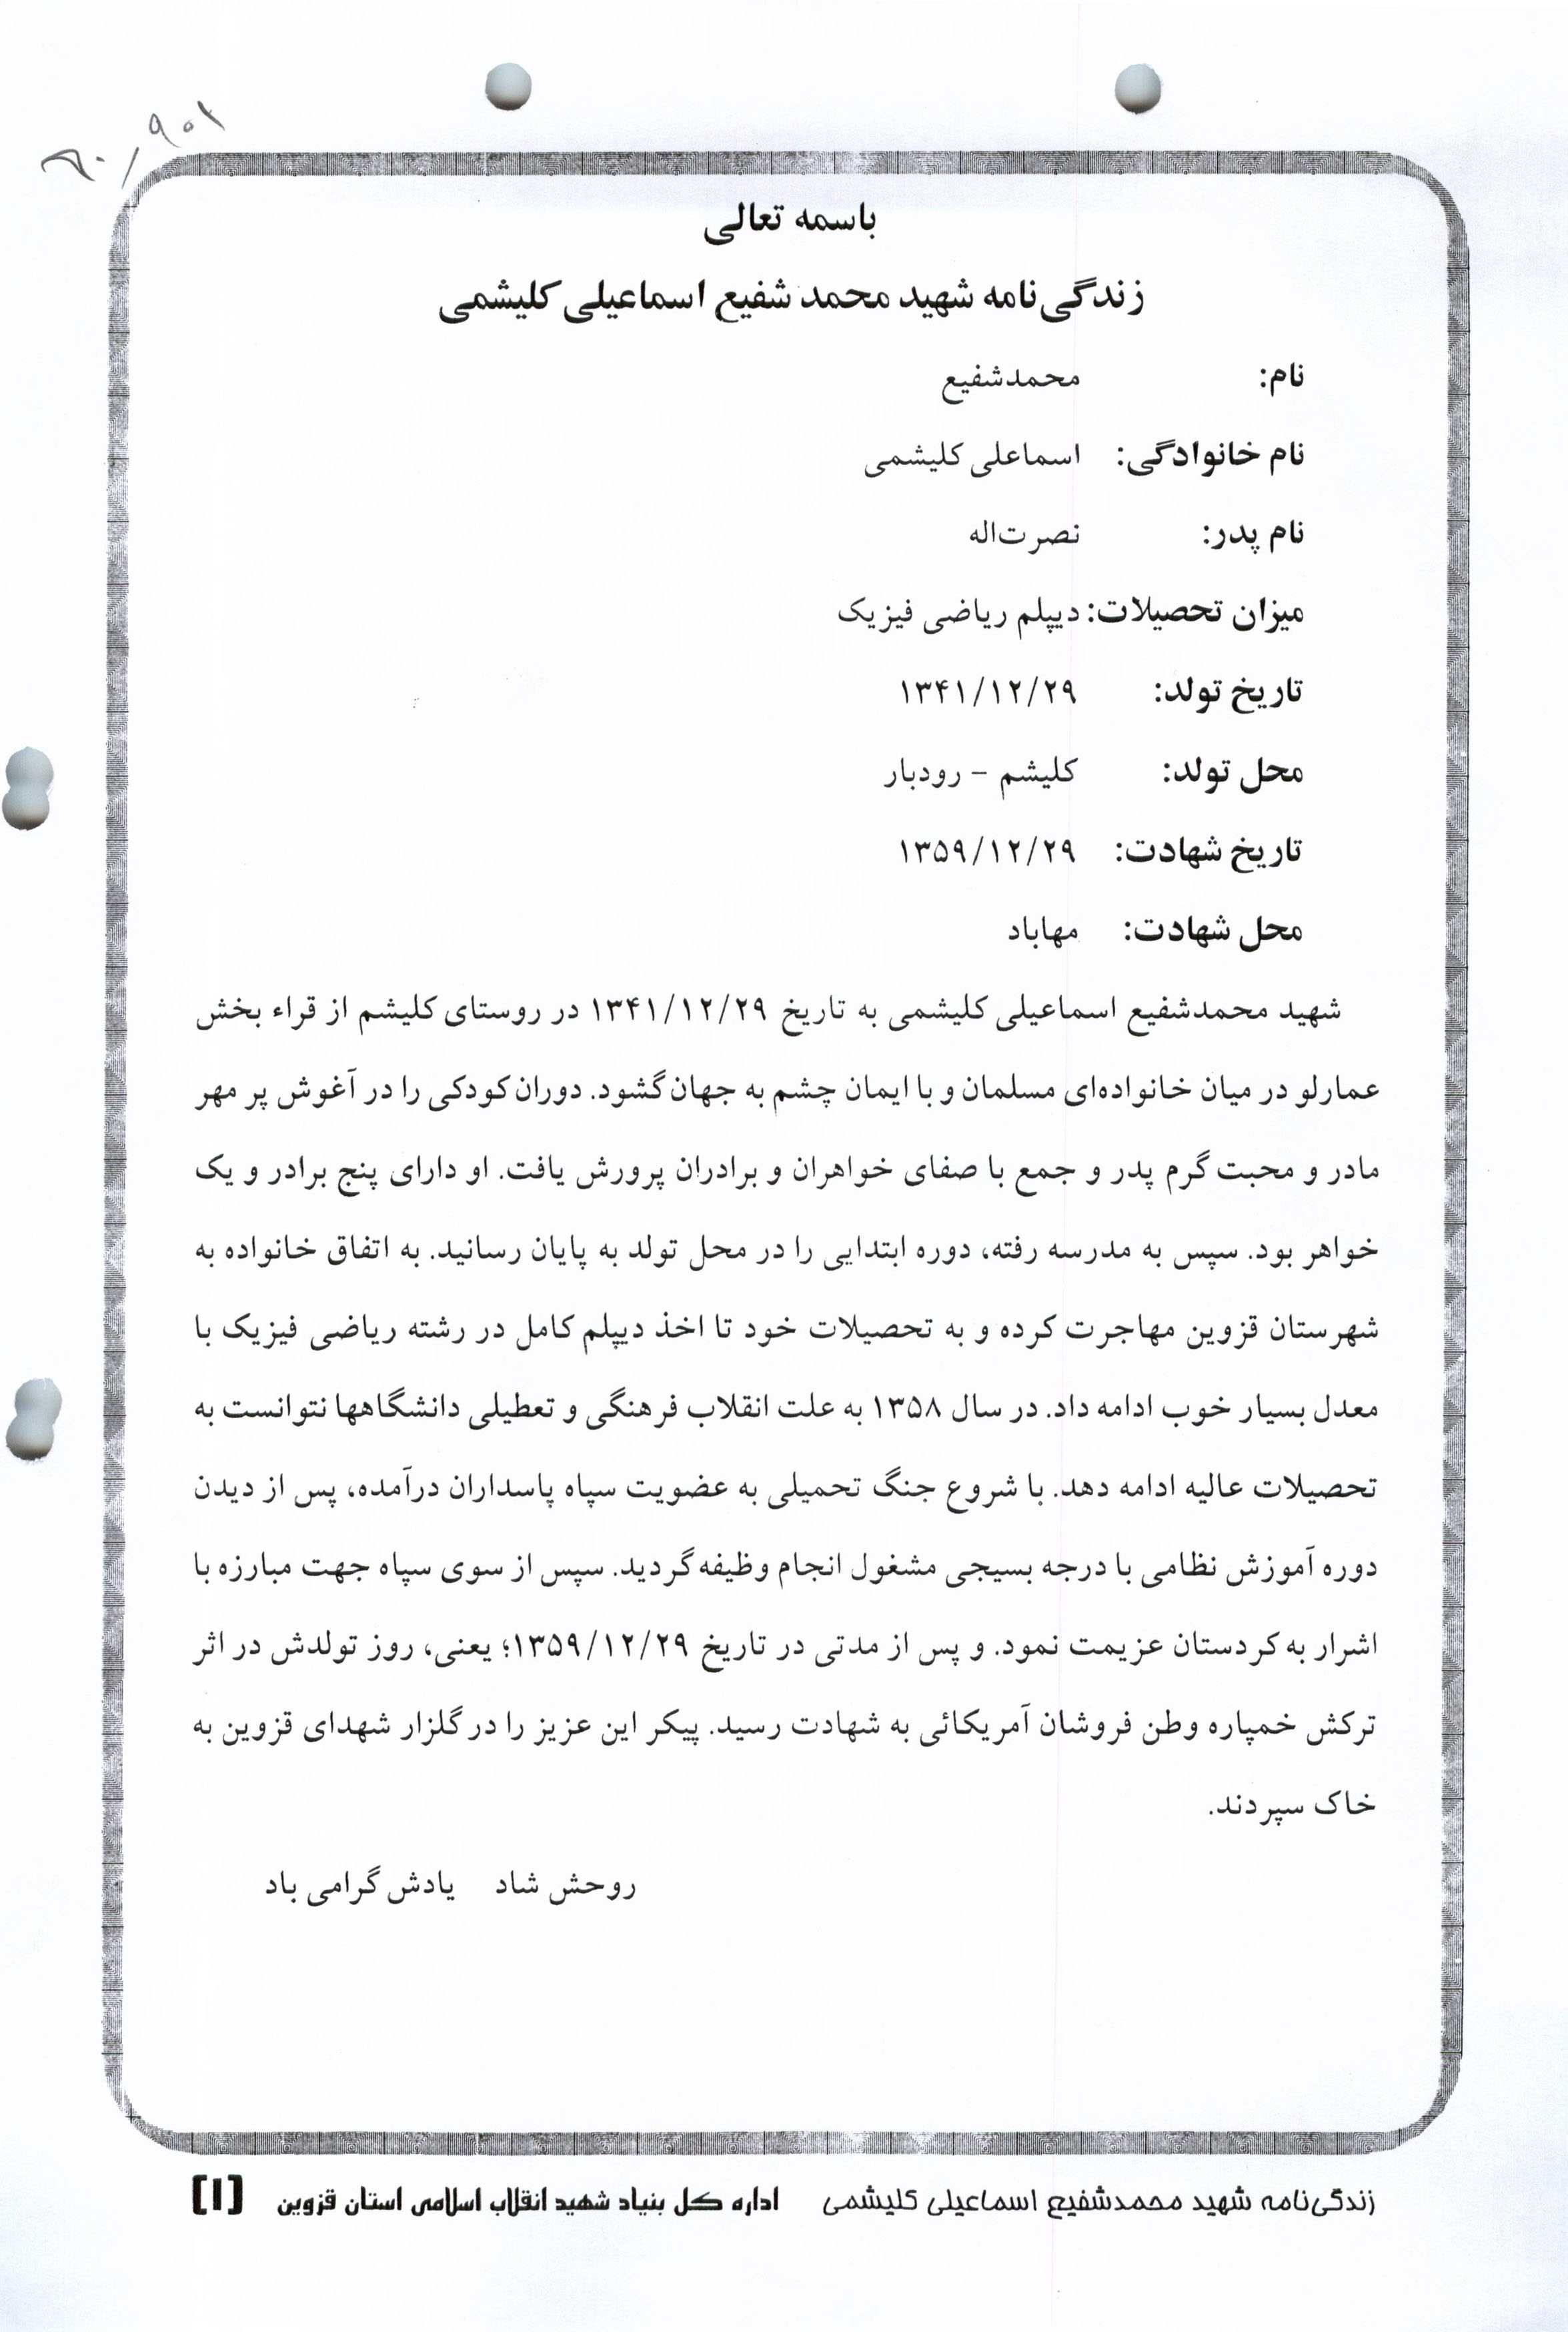 باسمه تعالی
زندگی‌نامه شهید محمد شفیع اسماعیلی کلیشمی
نام: محمدشفیع
نام خانوادگی: اسماعلی کلیشمی
نام پدر: نصرت‌اله
میزان تحصیلات: دیپلم ریاضی فیزیک
تاریخ تولد: ۱۳۴۱/۱۲/۲۹
محل تولد: کلیشم - رودبار
تاریخ شهادت: ۱۳۵۹/۱۲/۲۹
محل شهادت: مهاباد
شهید محمدشفیع اسماعیلی کلیشمی به تاریخ ۱۳۴۱/۱۲/۲۹ در روستای کلیشم از قراء بخش
عمارلو در میان خانواده‌ای مسلمان و با ایمان چشم به جهان گشود. دوران کودکی را در آغوش پر مهر
مادر و محبت گرم پدر و جمع با صفای خواهران و برادران پرورش یافت. او دارای پنج برادر و یک
خواهر بود. سپس به مدرسه رفته، دوره ابتدایی را در محل تولد به پایان رسانید. به اتفاق خانواده به
شهرستان قزوین مهاجرت کرده و به تحصیلات خود تا اخذ دیپلم کامل در رشته ریاضی فیزیک با
معدل بسیار خوب ادامه داد. در سال ۱۳۵۸ به علت انقلاب فرهنگی و تعطیلی دانشگاهها نتوانست به
تحصیلات عالیه ادامه دهد. با شروع جنگ تحمیلی به عضویت سپاه پاسداران درآمده، پس از دیدن
دوره آموزش نظامی با درجه بسیجی مشغول انجام وظیفه گردید. سپس از سوی سپاه جهت مبارزه با
اشرار به کردستان عزیمت نمود. و پس از مدتی در تاریخ ۱۳۵۹/۱۲/۲۹؛ یعنی، روز تولدش در اثر
ترکش خمپاره وطن فروشان آمریکائی به شهادت رسید. پیکر این عزیز را در گلزار شهدای قزوین به
خاک سپردند.
روحش شاد یادش گرامی باد
زندگی‌نامه شهید محمدشفیع اسماعیلی کلیشمی اداره کل بنیاد شهید انقلاب اسلامی استان قزوین [۱]